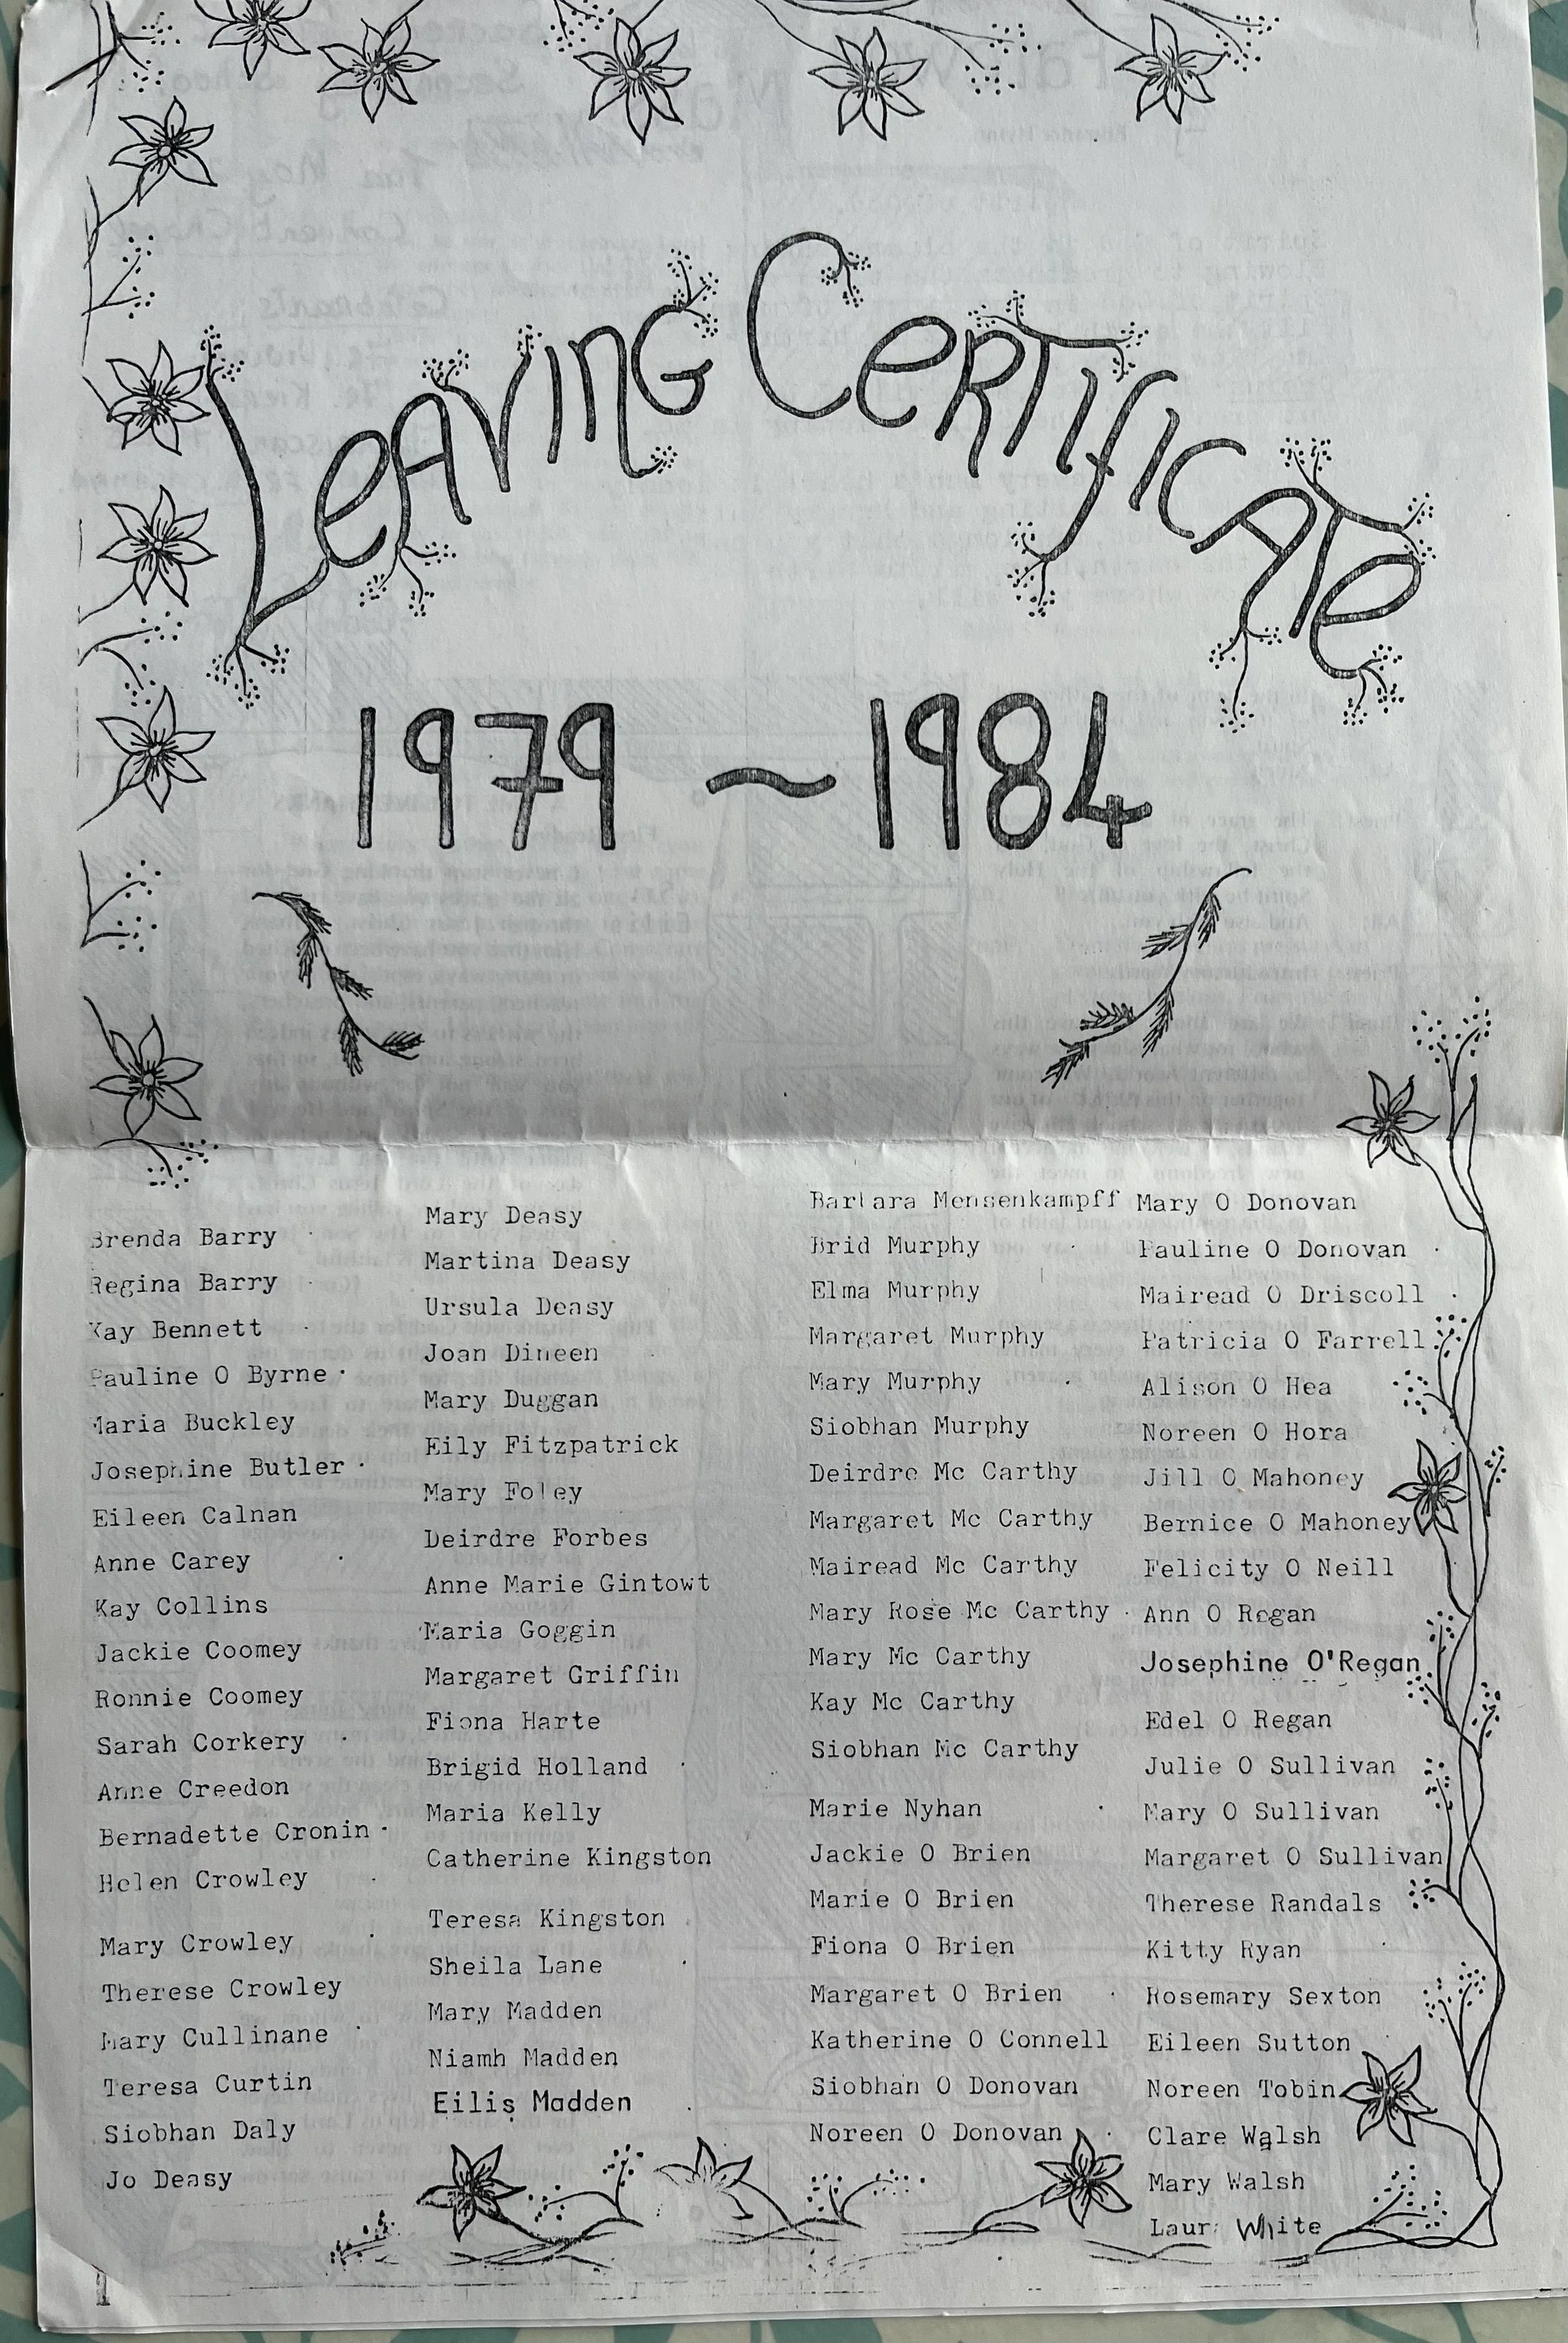 Leaving Certificate
1979 ~ 1984
Brenda Barry
Regina Barry
Kay Bennett
Pauline O Byrne
Maria Buckley
Josephine Butler
Eileen Calnan
Anne Carey
Kay Collins
Jackie Coomey
Ronnie Coomey
Sarah Corkery
Anne Creedon
Bernadette Cronin
Helen Crowley
Mary Crowley
Therese Crowley
Mary Cullinane
Teresa Curtin
Siobhan Daly
Jo Deasy
Mary Deasy
Martina Deasy
Ursula Deasy
Joan Dineen
Mary Duggan
Eily Fitzpatrick
Mary Foley
Deirdre Forbes
Anne Marie Gintowt
Maria Goggin
Margaret Griffin
Fiona Harte
Brigid Holland
Maria Kelly
Catherine Kingston
Teresa Kingston
Sheila Lane
Mary Madden
Niamh Madden
Eilis Madden
Barbara Mensenkampff
Brid Murphy
Elma Murphy
Margaret Murphy
Mary Murphy
Siobhan Murphy
Deirdre Mc Carthy
Margaret Mc Carthy
Mairead Mc Carthy
Mary Rose Mc Carthy
Mary Mc Carthy
Kay Mc Carthy
Siobhan Mc Carthy
Marie Nyhan
Jackie O Brien
Marie O Brien
Fiona O Brien
Margaret O Brien
Katherine O Connell
Siobhan O Donovan
Noreen O Donovan
Mary O Donovan
Pauline O Donovan
Mairead O Driscoll
Patricia O Farrell
Alison O Hea
Noreen O Hora
Jill O Mahoney
Bernice O Mahoney
Felicity O Neill
Ann O Regan
Josephine O'Regan
Edel O Regan
Julie O Sullivan
Mary O Sullivan
Margaret O Sullivan
Therese Randals
Kitty Ryan
Rosemary Sexton
Eileen Sutton
Noreen Tobin
Clare Walsh
Mary Walsh
Laura White